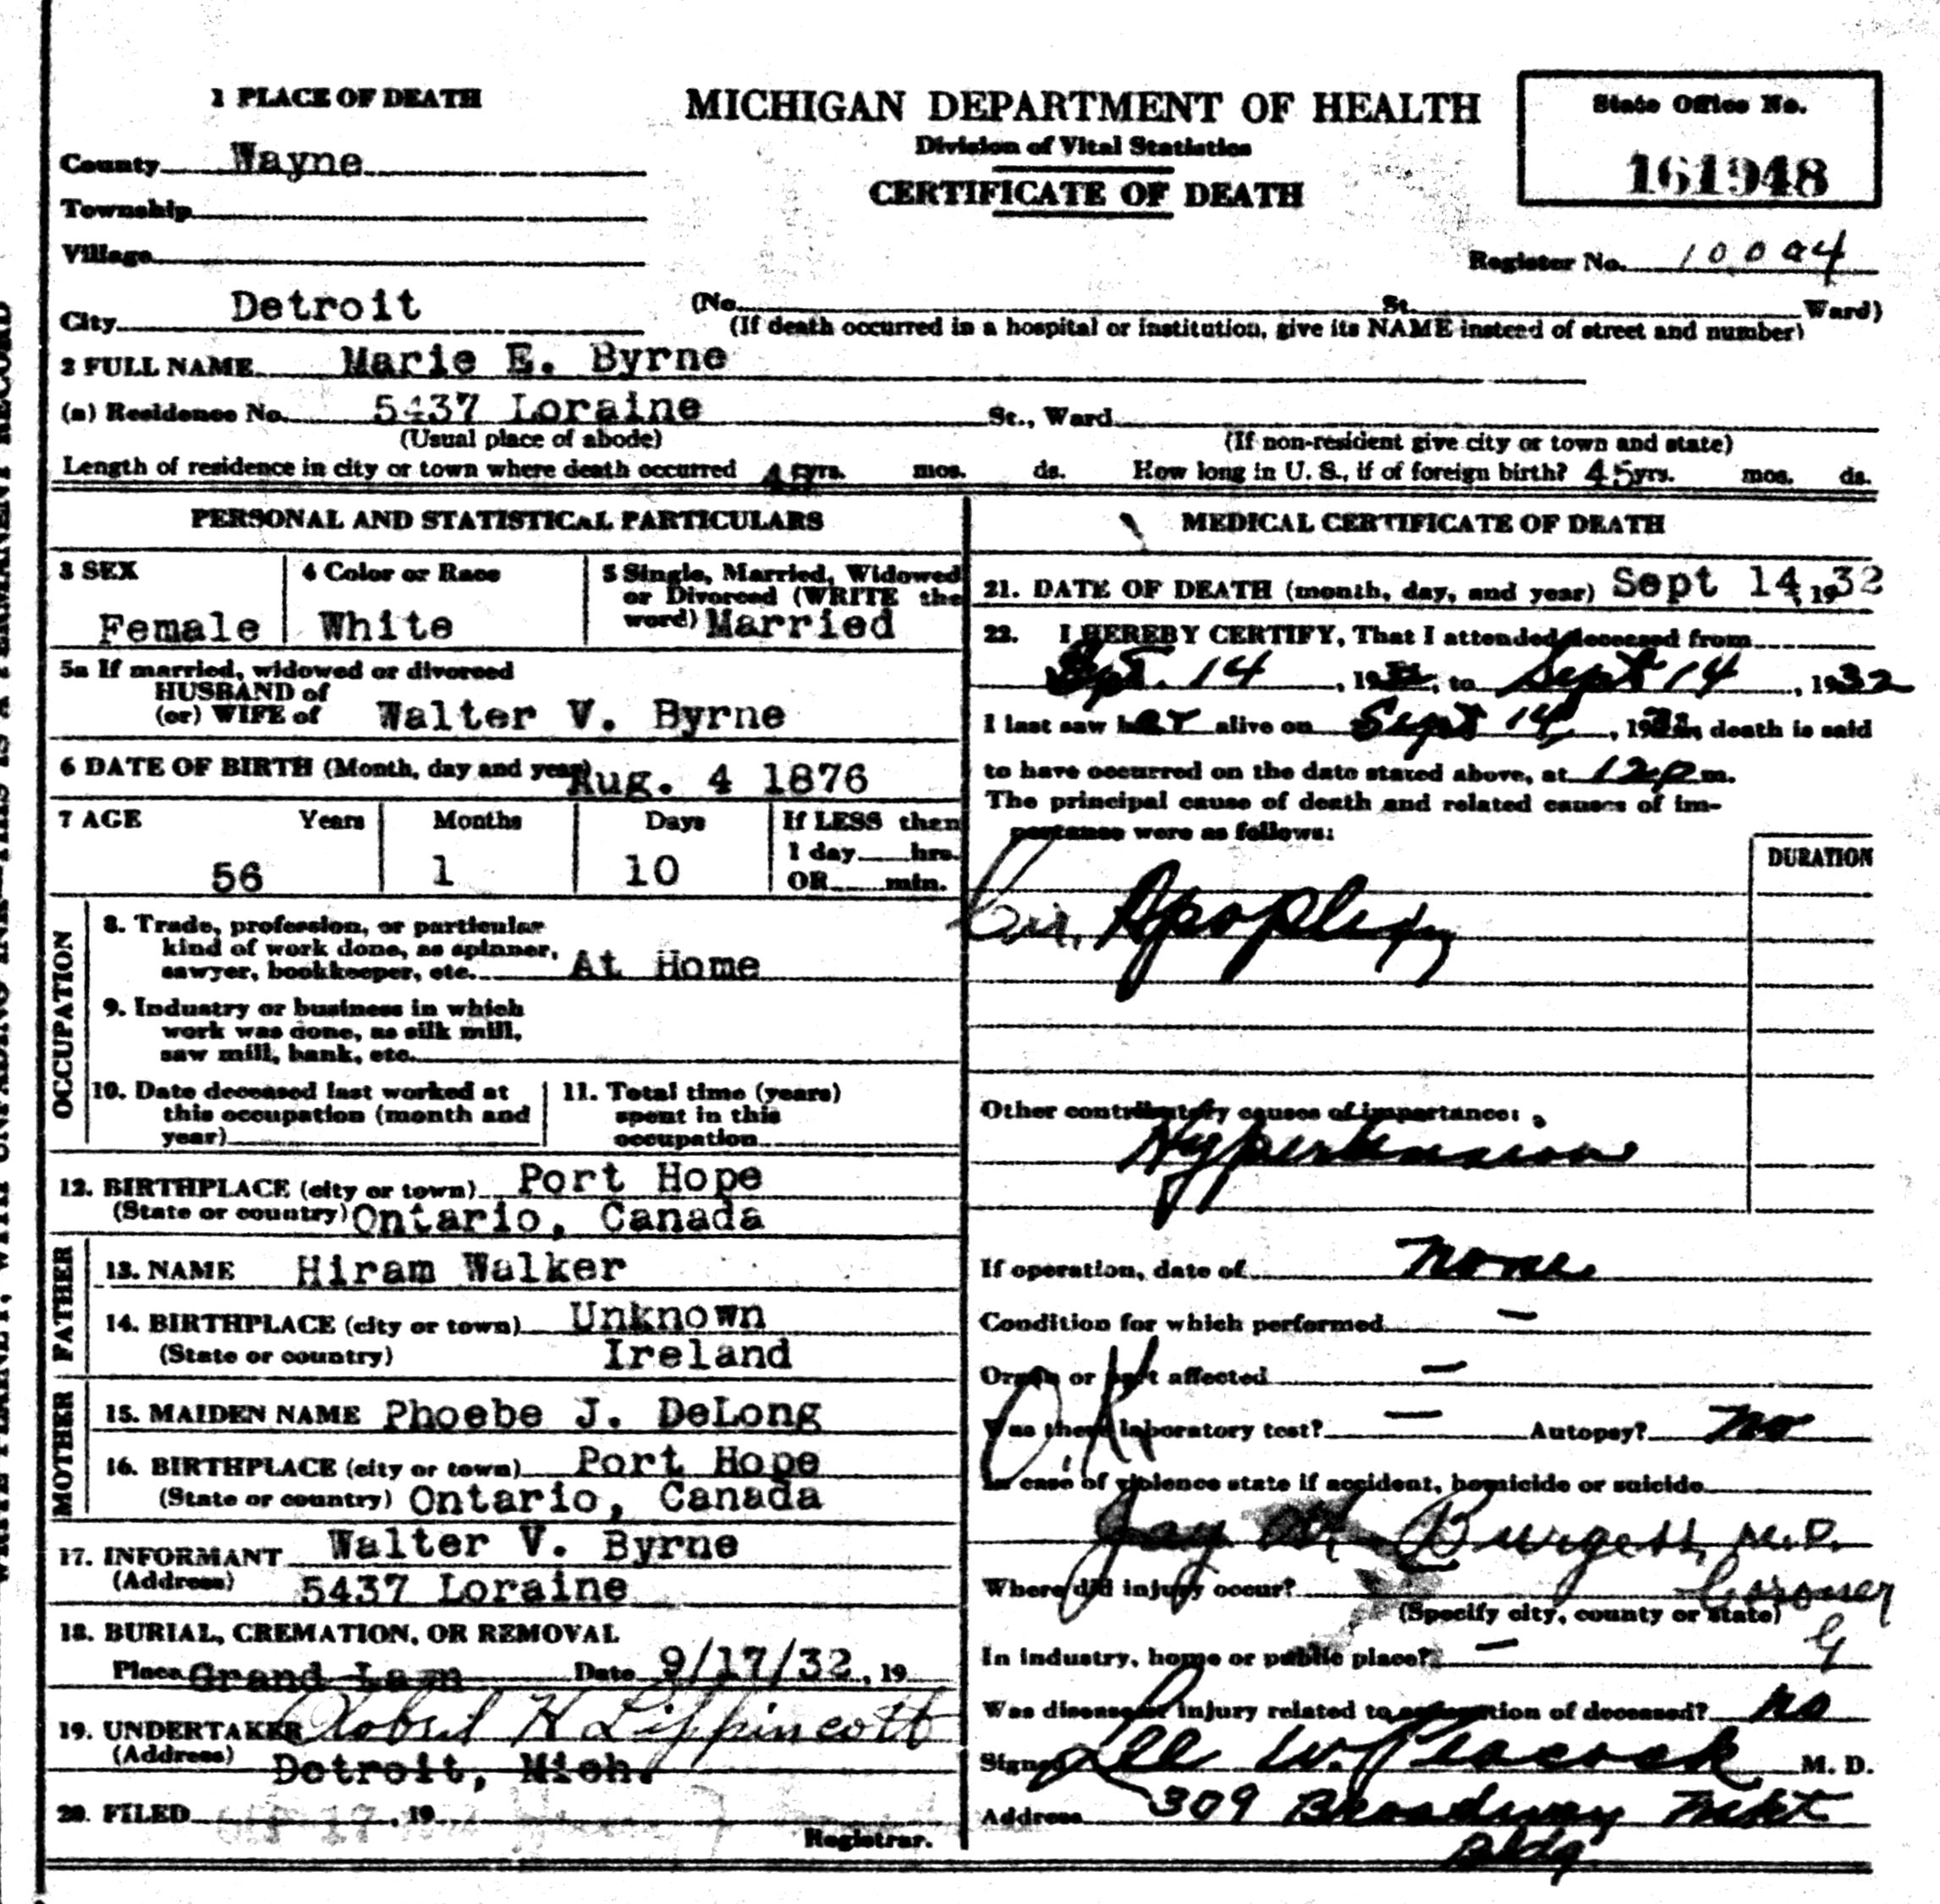 1 PLACE OF DEATH
MICHIGAN DEPARTMENT OF HEALTH
Division of Vital Statistics
CERTIFICATE OF DEATH
State Office No.
161948
County Wayne
Township
Village
Register No. 10004
City Detroit (No. St. Ward)
(If death occurred in a hospital or institution, give its NAME instead of street and number)
2 FULL NAME Marie E. Byrne
(a) Residence No. 5437 Loraine St., Ward
(Usual place of abode) (If non-resident give city or town and state)
Length of residence in city or town where death occurred 45 yrs. mos. ds. How long in U. S., if of foreign birth? 45 yrs. mos. ds.
PERSONAL AND STATISTICAL PARTICULARS
3 SEX
Female
4 Color or Race
White
5 Single, Married, Widowed
or Divorced (WRITE the
word) Married
5a If married, widowed or divorced
HUSBAND of
(or) WIFE of Walter V. Byrne
6 DATE OF BIRTH (Month, day and year) Aug. 4 1876
7 AGE Years Months Days If LESS then
1 day hrs.
56 1 10 OR min.
OCCUPATION
8. Trade, profession, or particular
kind of work done, as spinner,
sawyer, bookkeeper, etc. At Home
9. Industry or business in which
work was done, as silk mill,
saw mill, bank, etc.
10. Date deceased last worked at
this occupation (month and
year)
11. Total time (years)
spent in this
occupation
12. BIRTHPLACE (city or town) Port Hope
(State or country) Ontario, Canada
FATHER
13. NAME Hiram Walker
14. BIRTHPLACE (city or town) Unknown
(State or country) Ireland
MOTHER
15. MAIDEN NAME Phoebe J. DeLong
16. BIRTHPLACE (city or town) Port Hope
(State or country) Ontario, Canada
17. INFORMANT Walter V. Byrne
(Address) 5437 Loraine
18. BURIAL, CREMATION, OR REMOVAL
Place Grand Lawn Date 9/17/32, 19
19. UNDERTAKER Robert H Lippincott
(Address) Detroit, Mich.
20. FILED 17, 19
Registrar.
MEDICAL CERTIFICATE OF DEATH
21. DATE OF DEATH (month, day, and year) Sept 14, 1932
22. I HEREBY CERTIFY, That I attended deceased from
Sept. 14, 1932, to Sept 14, 1932
I last saw her alive on Sept 14, 1932, death is said
to have occurred on the date stated above, at 12 p m.
The principal cause of death and related causes of im-
portance were as follows:
DURATION
Apoplexy
Other contributory causes of importance:
Hypertension
If operation, date of none
Condition for which performed —
Organ or part affected —
O.K.
Was there laboratory test? — Autopsy? no
In case of violence state if accident, homicide or suicide
Jay Burgett M.D.
Where did injury occur? Coroner
(Specify city, county or state)
In industry, home or public place? — G
Was disease or injury related to occupation of deceased? no
Signed Lee W. Peacock M. D.
Address 309 Broadway Mkt
Bldg